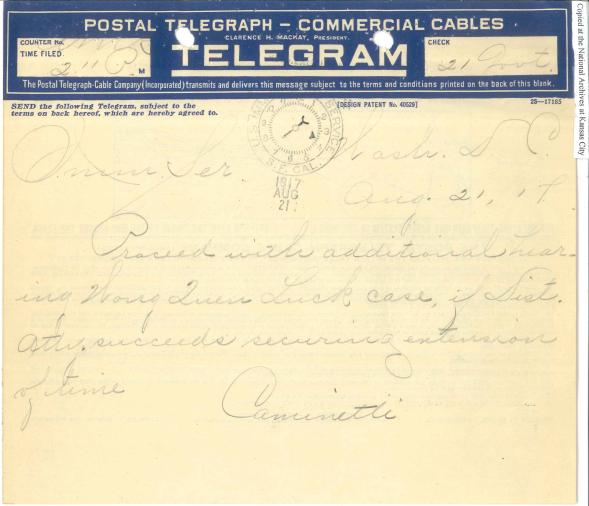 POSTAL TELEGRAPH – COMMERCIAL CABLES
CLARENCE H. MACKAY, PRESIDENT.
TELEGRAM
COUNTER No.
TIME FILED
2 11 P. M
CHECK
21 Govt.
The Postal Telegraph-Cable Company (Incorporated) transmits and delivers this message subject to the terms and conditions printed on the back of this blank.
SEND the following Telegram, subject to the
terms on back hereof, which are hereby agreed to.
[DESIGN PATENT No. 40529]
25—17165
SERVICE
S. F. CAL.
1917
AUG
21
Imm. Ser. Wash. D. C.
Aug. 21, 17.
Proceed with additional hear-
ing Wong Quen Luck case, if Dist.
Atty. succeeds securing extension
of time
Caminetti
Copied at the National Archives at Kansas City